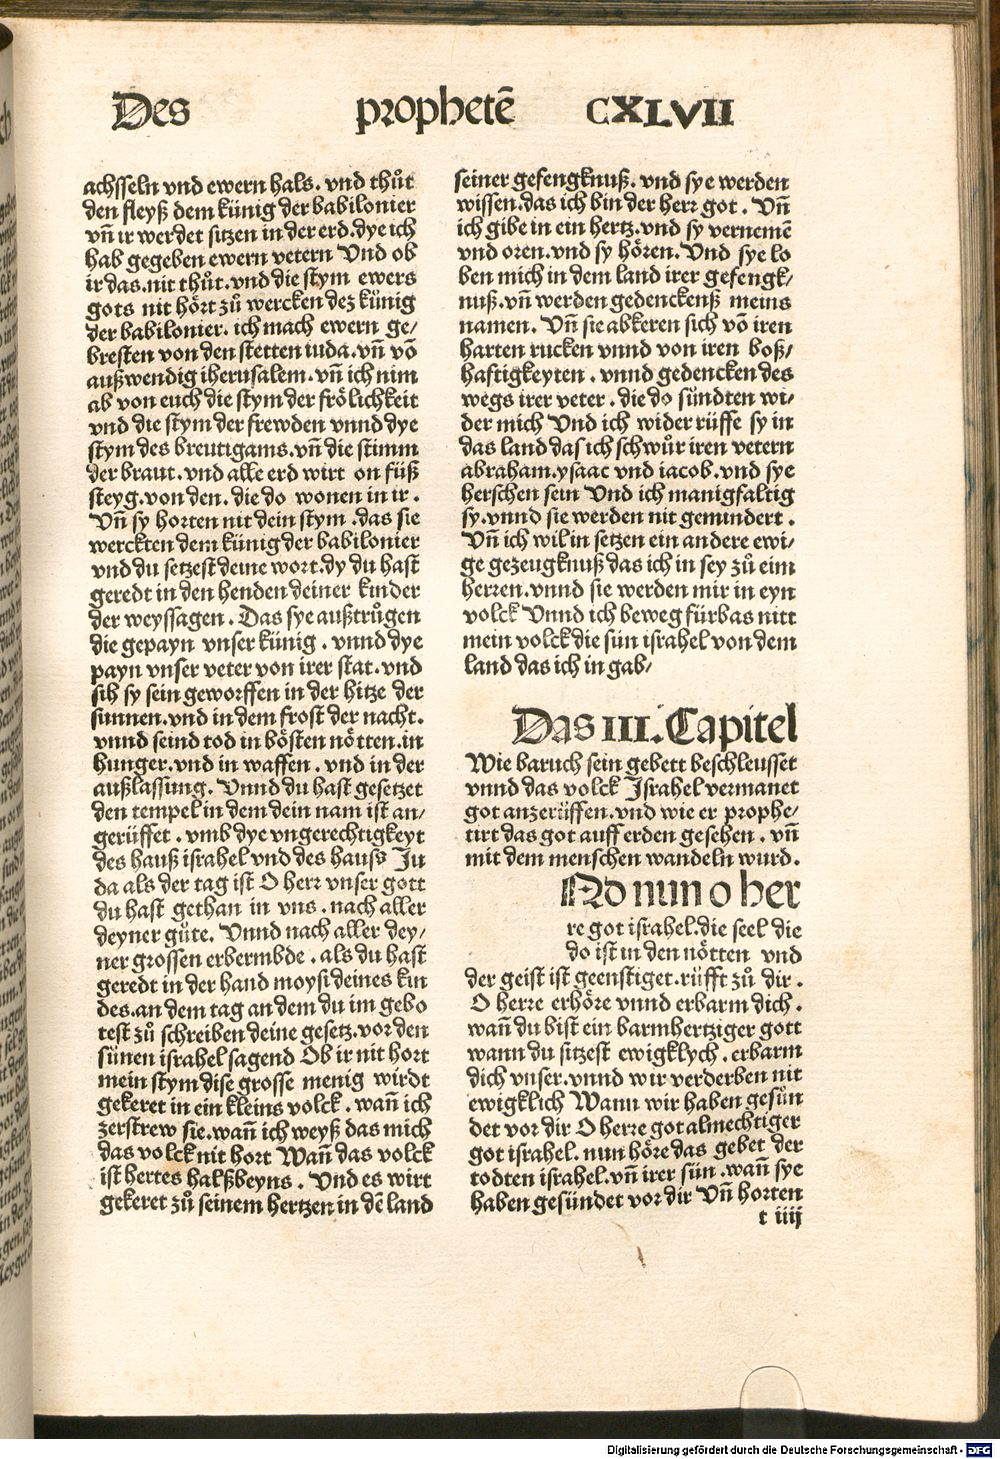 Des prophetē CXLVII
achsseln vnd ewern hals. vnd thůt
den fleyß dem künig der babilonier
vn̄ ir werdet sitzen in der erd. dye ich
hab gegeben ewern vetern Vnd ob
ir das. nit thůt. vnd die stym ewers
gots nit hört zů wercken dez künig
der babilonier. ich mach ewern ge/
bresten von den stetten iuda. vn̄ vō
außwendig iherusalem. vn̄ ich nim
ab von euch die stym der frölichkeit
vnd die stym der frewden vnnd dye
stym des breutigams. vn̄ die stimm
der braut. vnd alle erd wirt on füß
steyg. von den. die do wonen in ir.
Vn̄ sy horten nit dein stym. das sie
werckten dem künig der babilonier
vnd du setzest deine wort. dy du hast
geredt in den henden deiner kinder
der weyssagen. Das sye außtrůgen
die gepayn vnser künig. vnnd dye
payn vnser veter von irer stat. vnd
sih sy sein geworffen in der hitze der
sunnen. vnd in dem frost der nacht.
vnnd seind tod in bösten nötten. in
hunger. vnd in waffen. vnd in der
außlassung. Vnnd du hast gesetzet
den tempel in dem dein nam ist an/
gerüffet. vmb dye vngerechtigkeyt
des hauß israhel vnd des hauss Ju
da als der tag ist O herr vnser gott
du hast gethan in vns. nach aller
deyner gůte. Vnnd nach aller dey/
ner grossen erbermbde. als du hast
geredt in der hand moysi deines kin
des. an dem tag an dem du im gebo
test zů schreiben deine gesetz. vor den
sünen israhel sagend Ob ir nit hort
mein stym dise grosse menig wirdt
gekeret in ein kleins volck. wan̄ ich
zerstrew sie. wan̄ ich weyß das mich
das volck nit hort Wan̄ das volck
ist hertes halßbeyns. Vnd es wirt
gekeret zů seinem hertzen in dē land
seiner gefengknuß. vnd sye werden
wissen. das ich bin der herr got. Vn̄
ich gibe in ein hertz. vnd sy vernemē
vnd oren. vnd sy hören. Vnd sye lo
ben mich in dem land irer gefengk/
nuß. vn̄ werden gedenckenß meins
namen. Vn̄ sie abkeren sich vō iren
harten rucken vnnd von iren boß/
haftigkeyten. vnnd gedencken des
wegs irer veter. die do sündten wi/
der mich Vnd ich wider rüffe sy in
das land das ich schwůr iren vetern
abraham. ysaac vnd iacob. vnd sye
herschen sein Vnd ich manigfaltig
sy. vnnd sie werden nit gemindert.
Vn̄ ich wil in setzen ein andere ewi/
ge gezeugknuß das ich in sey zů eim
herren. vnnd sie werden mir in eyn
volck Vnnd ich beweg fürbas nitt
mein volck die sün israhel von dem
land das ich in gab/
Das III. Capitel
Wie baruch sein gebett beschleusset
vnnd das volck Israhel vermanet
got anzerüffen. vnd wie er prophe/
tirt das got auff erden gesehen. vn̄
mit dem menschen wandeln wurd.
ND nun o her
re got israhel. die seel die
do ist in den nötten vnd
der geist ist geenstiget. rüfft zů dir.
O herre erhöre vnnd erbarm dich.
wan̄ du bist ein barmhertziger gott
wann du sitzest ewigklych. erbarm
dich vnser. vnnd wir verderben nit
ewigklich Wann wir haben gesün
det vor dir O herre got almechtiger
got israhel. nun höre das gebet der
todten israhel. vn̄ irer sün. wan̄ sye
haben gesündet vor dir Vn̄ horten
t iiij
Digitalisierung gefördert durch die Deutsche Forschungsgemeinschaft - DFG